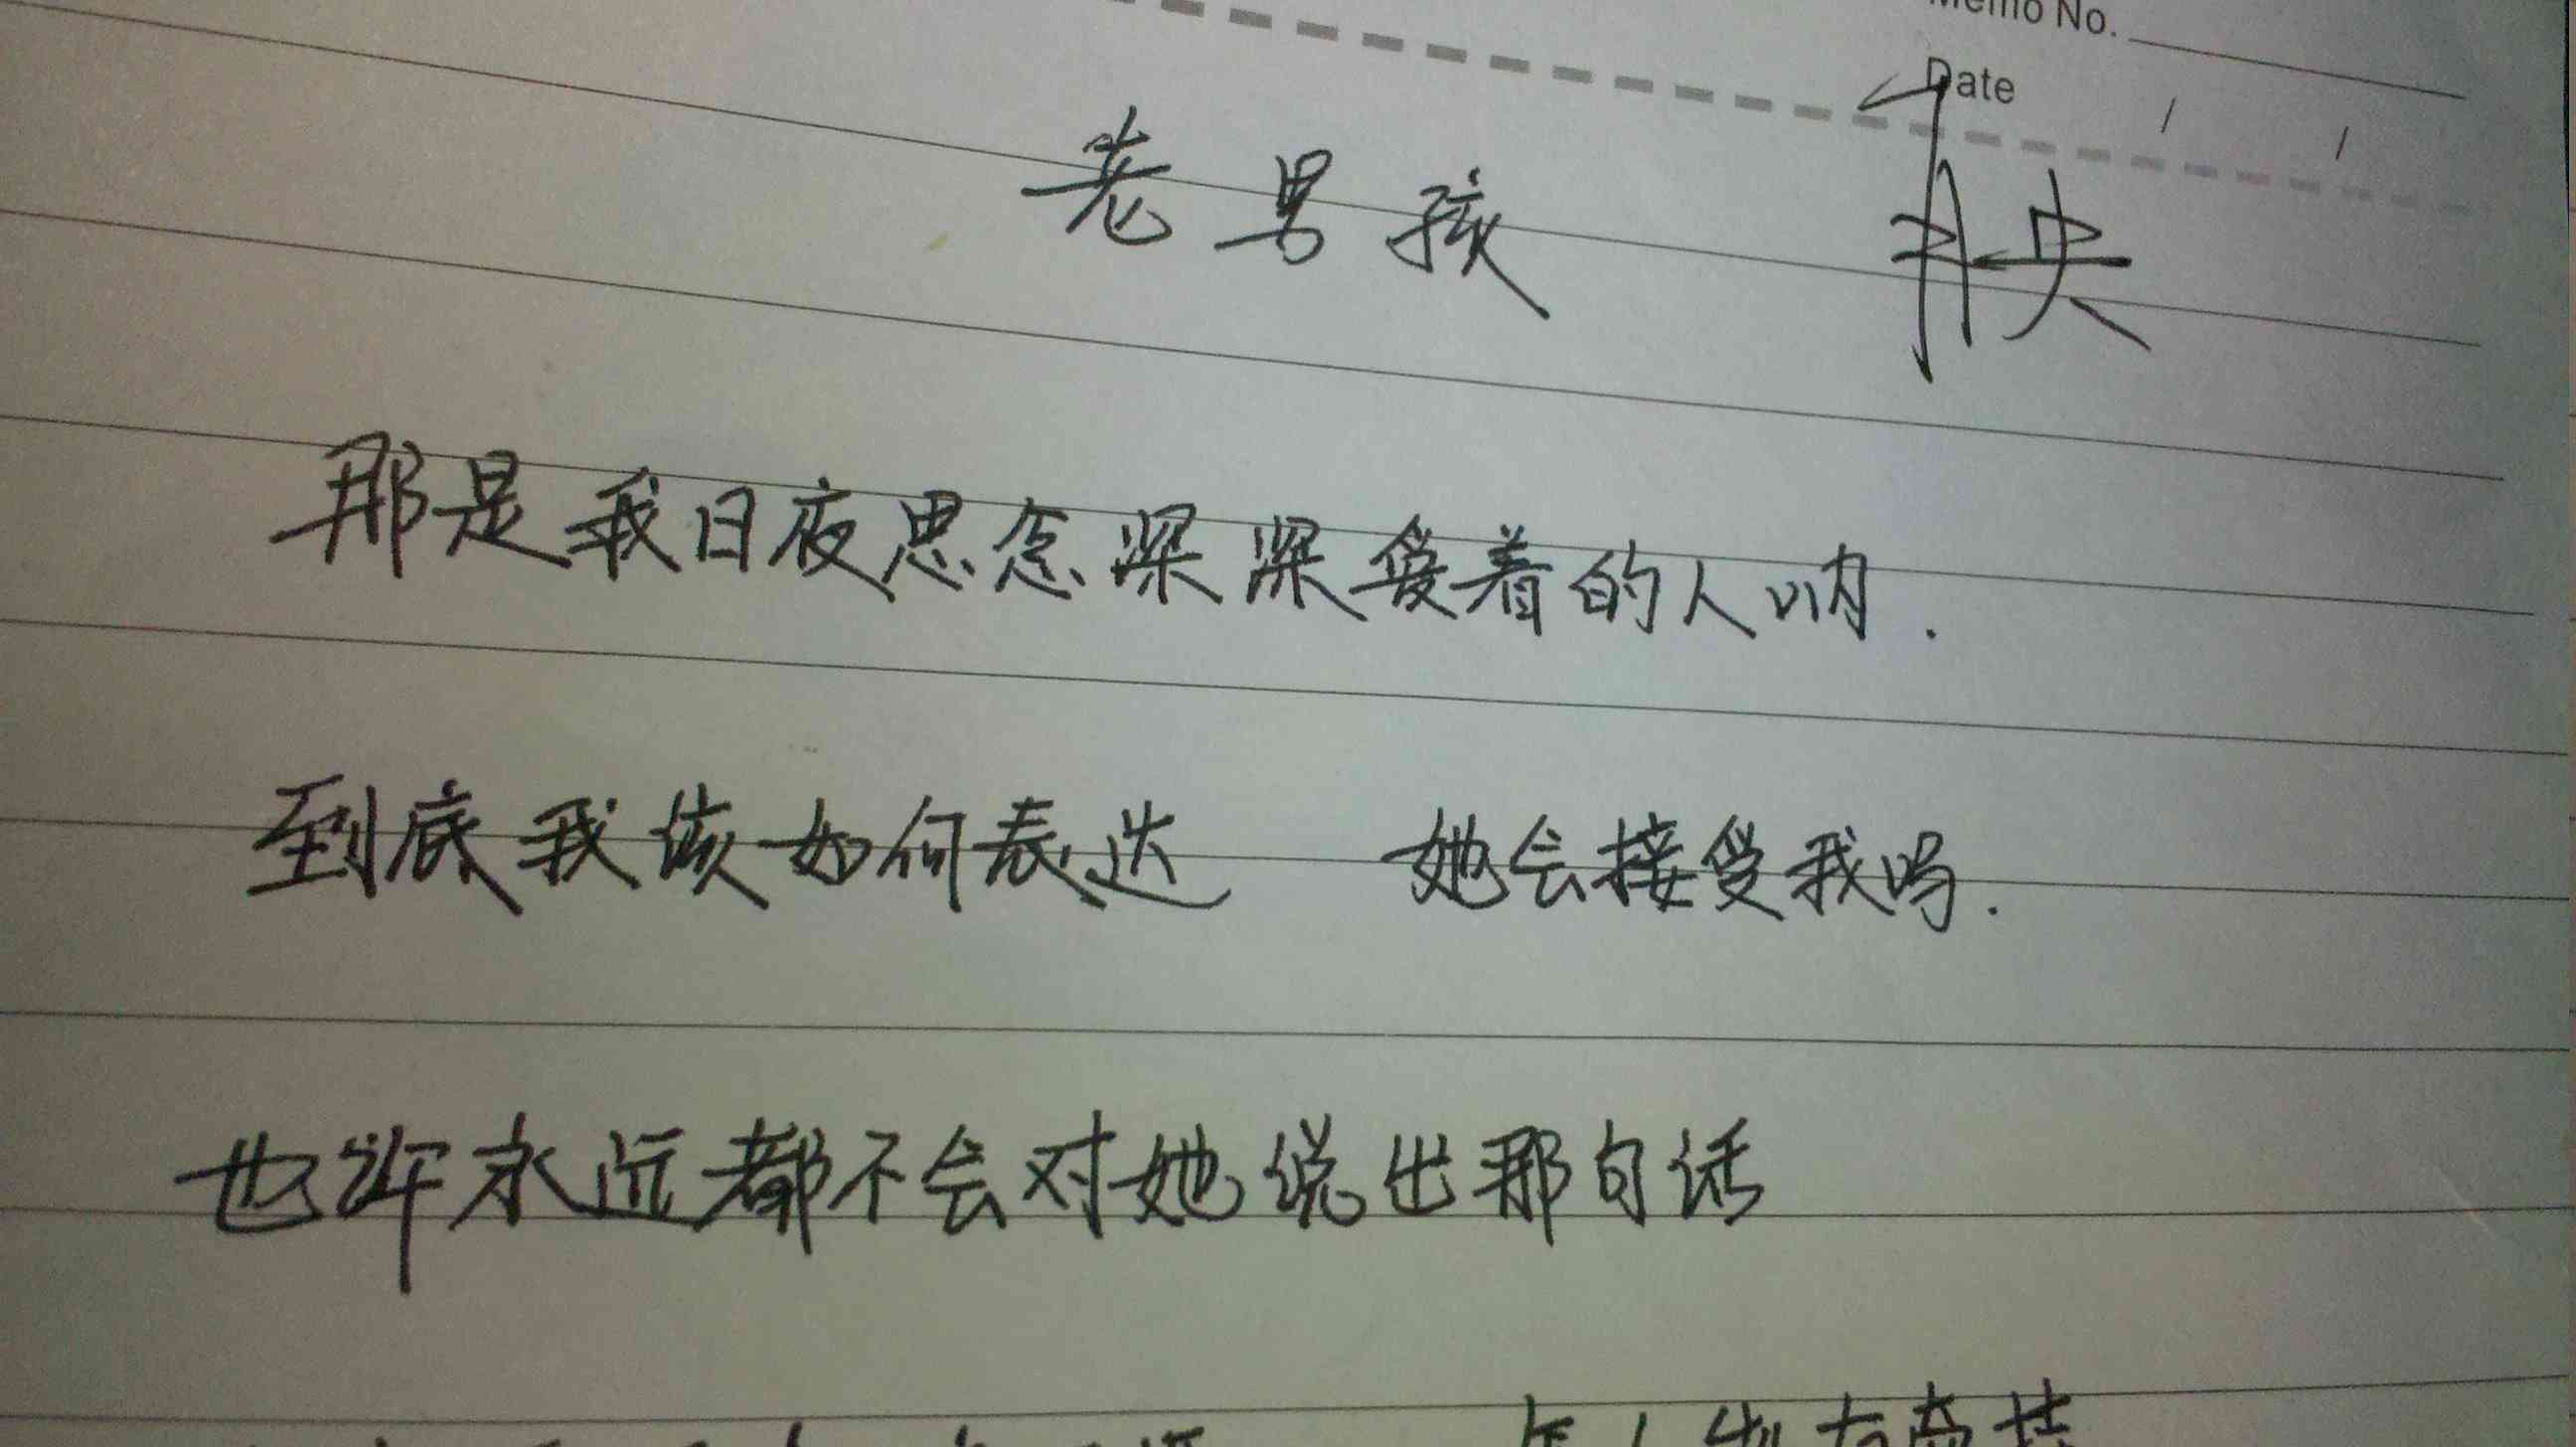 Memo No.
Date / /
老男孩
那是我日夜思念深深爱着的人呐.
到底我该如何表达 她会接受我吗.
也许永远都不会对她说出那句话